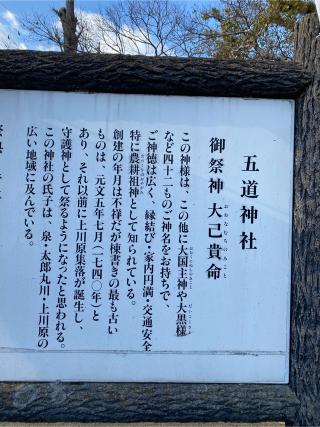 五道神社
御祭神 大己貴命
おおなむちのみこと
この神様は、この他に大国主神や大黒様
など四十二ものご神名をお持ちで、
ご神徳は広く、縁結び・家内円満・交通安全
特に農耕祖神として知られている。
創建の年月は不祥だが棟書きの最も古い
ものは、元文五年七月(一七四〇年)と
あり、それ以前に上川原集落が誕生し、
守護神として祭るようになったと思われる。
この神社の氏子は、泉・太郎丸川・上川原の
広い地域に及んでいる。